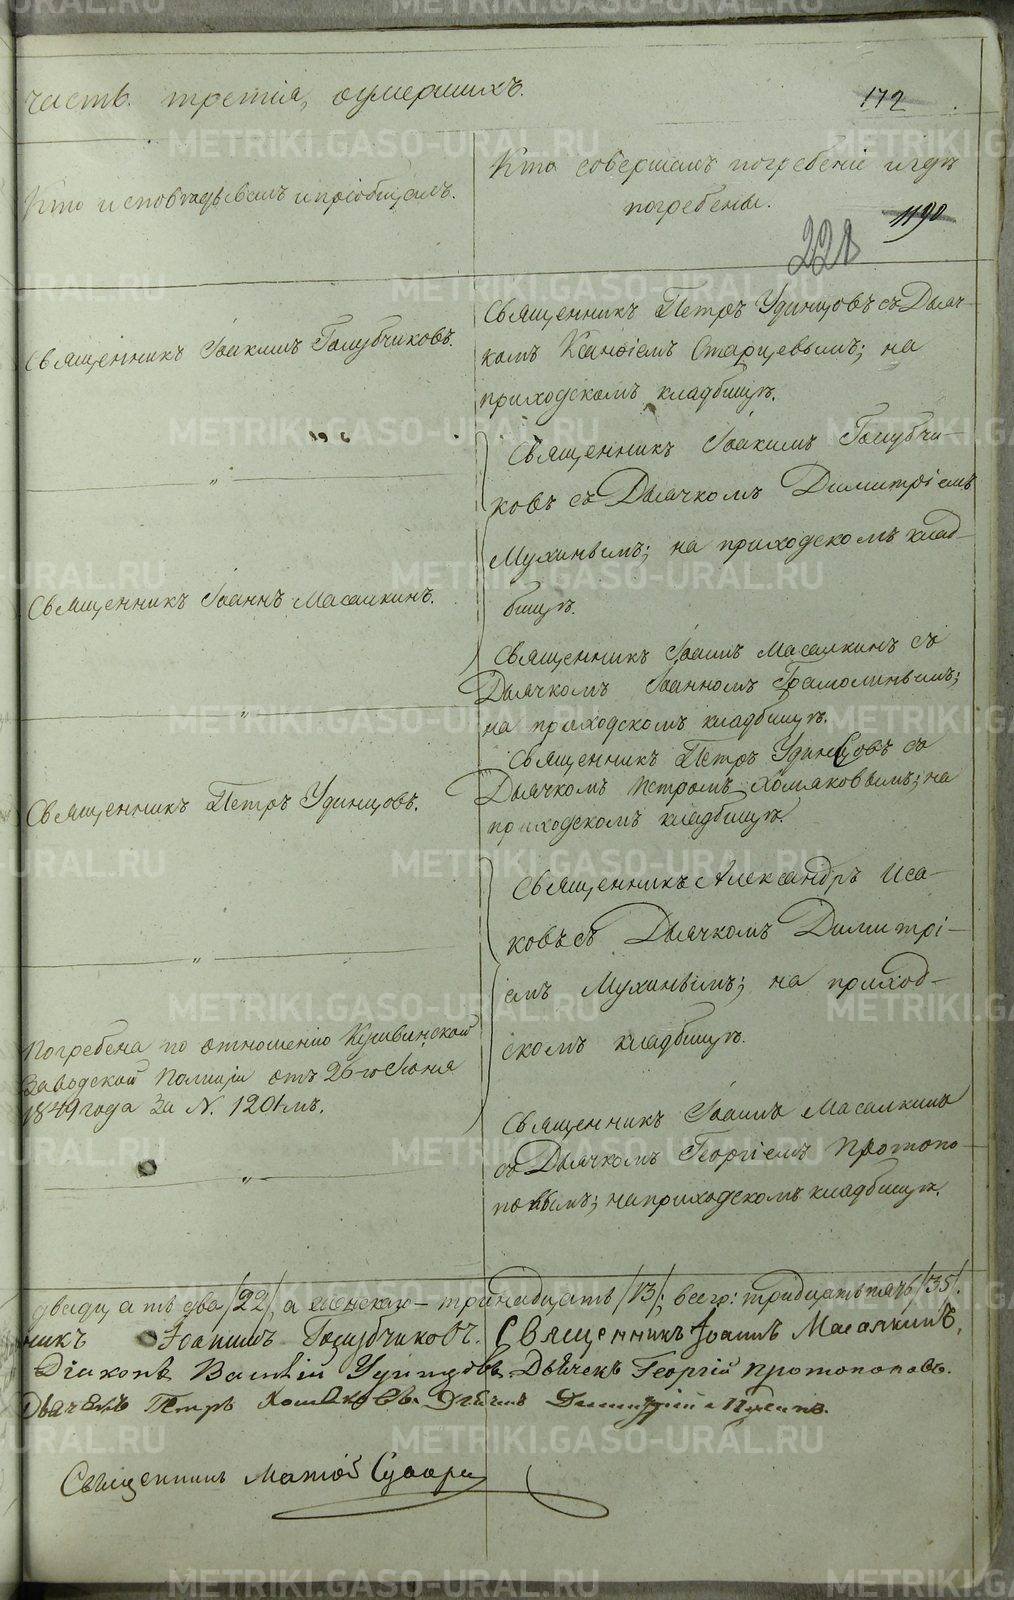 часть третія, оумершихъ.
172
Кто исповѣдывалъ и пріобщалъ.
Кто совершалъ погребеніе и гдѣ
погребены.
1190
221
Священникъ Іоакимъ Голубчиковъ.
Священникъ Петръ Удинцовъ съ Дьяч-
комъ Ксанфіемъ Старцевымъ; на
приходскомъ кладбищѣ.
"
Священникъ Іоакимъ Голубчи-
ковъ съ Дьячкомъ Димитріемъ
Мухинымъ; на приходскомъ клад-
бищѣ.
Священникъ Іоаннъ Масалкинъ.
Священникъ Іоаннъ Масалкинъ съ
Дьячкомъ Іоанномъ
на приходскомъ кладбищѣ.
"
Священникъ Петръ Удинцовъ.
Священникъ Петръ Удинцовъ съ
Дьячкомъ Петромъ Хомяковымъ; на
приходскомъ кладбищѣ.
"
Священникъ Александръ Иса-
ковъ съ Дьячкомъ Димитрі-
емъ Мухинымъ; на приход-
скомъ кладбищѣ.
Погребена по отношенію Кушвинской
Заводской Полиціи отъ 26-го Іюня
1849 года за N. 1201мъ.
"
Священникъ Іоаннъ Масалкинъ
съ Дьячкомъ Георгіемъ Протопо-
повымъ; на приходскомъ кладбищѣ.
двадцать два /22/, а женскаго – тринадцать /13/; всего: тридцать пять /35/.
никъ Іоакимъ Голубчиковъ. Священникъ Іоаннъ Масалкинъ,
Діаконъ Василій Удинцовъ Дьячекъ Георгій Протопоповъ.
Дьячекъ Петръ Хомяковъ. Дьячекъ Димитрій Мухинъ.
Священникъ
METRIKI.GASO-URAL.RU